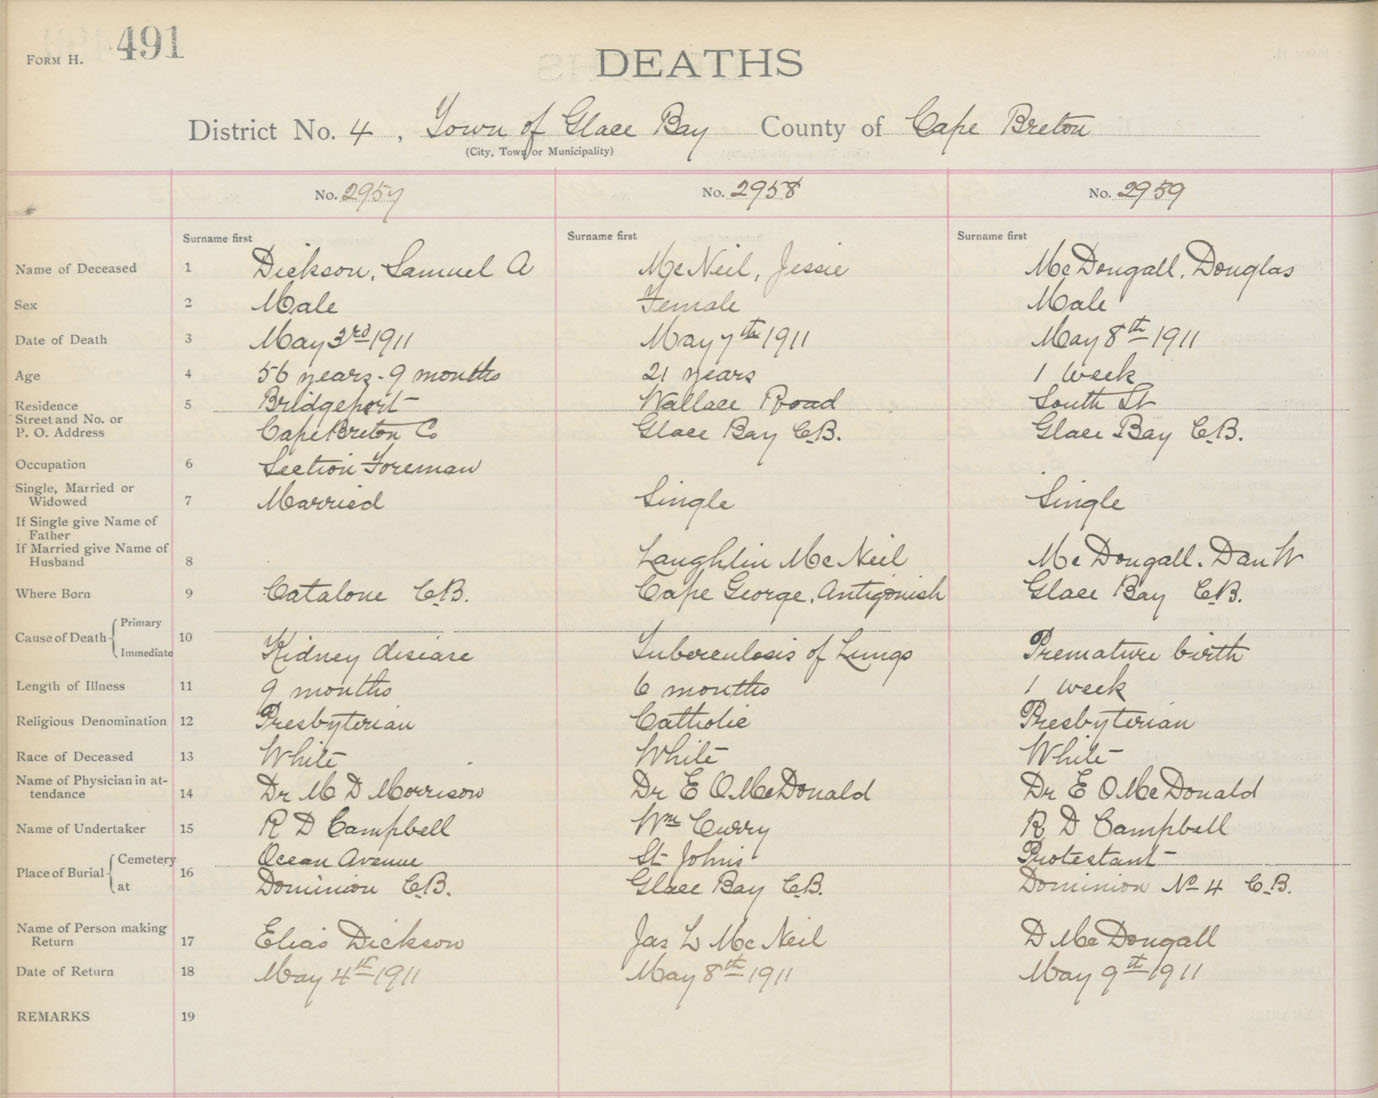 FORM H. 491
DEATHS
District No. 4, Town of Glace Bay County of Cape Breton
(City, Town or Municipality)
No. 2957 No. 2958 No. 2959
Surname first Surname first Surname first
Name of Deceased 1 Dickson, Samuel A McNeil, Jessie McDougall, Douglas
Sex 2 Male Female Male
Date of Death 3 May 3rd 1911 May 7th 1911 May 8th 1911
Age 4 56 years - 9 months 21 years 1 week
Residence 5 Bridgeport Wallace Road South St
Street and No. or
P. O. Address Cape Breton Co Glace Bay C.B. Glace Bay C.B.
Occupation 6 Section Foreman
Single, Married or
Widowed 7 Married Single Single
If Single give Name of
Father
If Married give Name of
Husband 8 Laughlin McNeil McDougall. Dan W
Where Born 9 Catalone C.B. Cape George, Antigonish Glace Bay C.B.
Cause of Death Primary 10
Immediate Kidney disease Tuberculosis of Lungs Premature birth
Length of Illness 11 9 months 6 months 1 week
Religious Denomination 12 Presbyterian Catholic Presbyterian
Race of Deceased 13 White White White
Name of Physician in at-
tendance 14 Dr M D Morrison Dr E O McDonald Dr E O McDonald
Name of Undertaker 15 R D Campbell Wm Curry R D Campbell
Place of Burial Cemetery 16 Ocean Avenue St Johns Protestant
at Dominion C.B. Glace Bay C.B. Dominion No 4 C.B.
Name of Person making
Return 17 Elias Dickson Jas L McNeil D McDougall
Date of Return 18 May 4th 1911 May 8th 1911 May 9th 1911
REMARKS 19